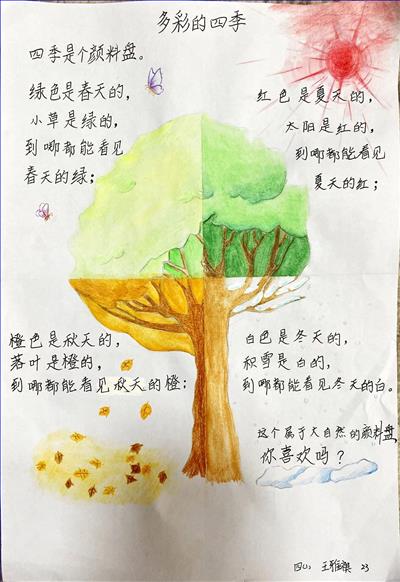 多彩的四季
四季是个颜料盘。
绿色是春天的,
小草是绿的,
到哪都能看见
春天的绿;
红色是夏天的,
太阳是红的,
到哪都能看见
夏天的红;
橙色是秋天的,
落叶是橙的,
到哪都能看见秋天的橙;
白色是冬天的,
积雪是白的,
到哪都能看见冬天的白。
这个属于大自然的颜料盘,
你喜欢吗?
23